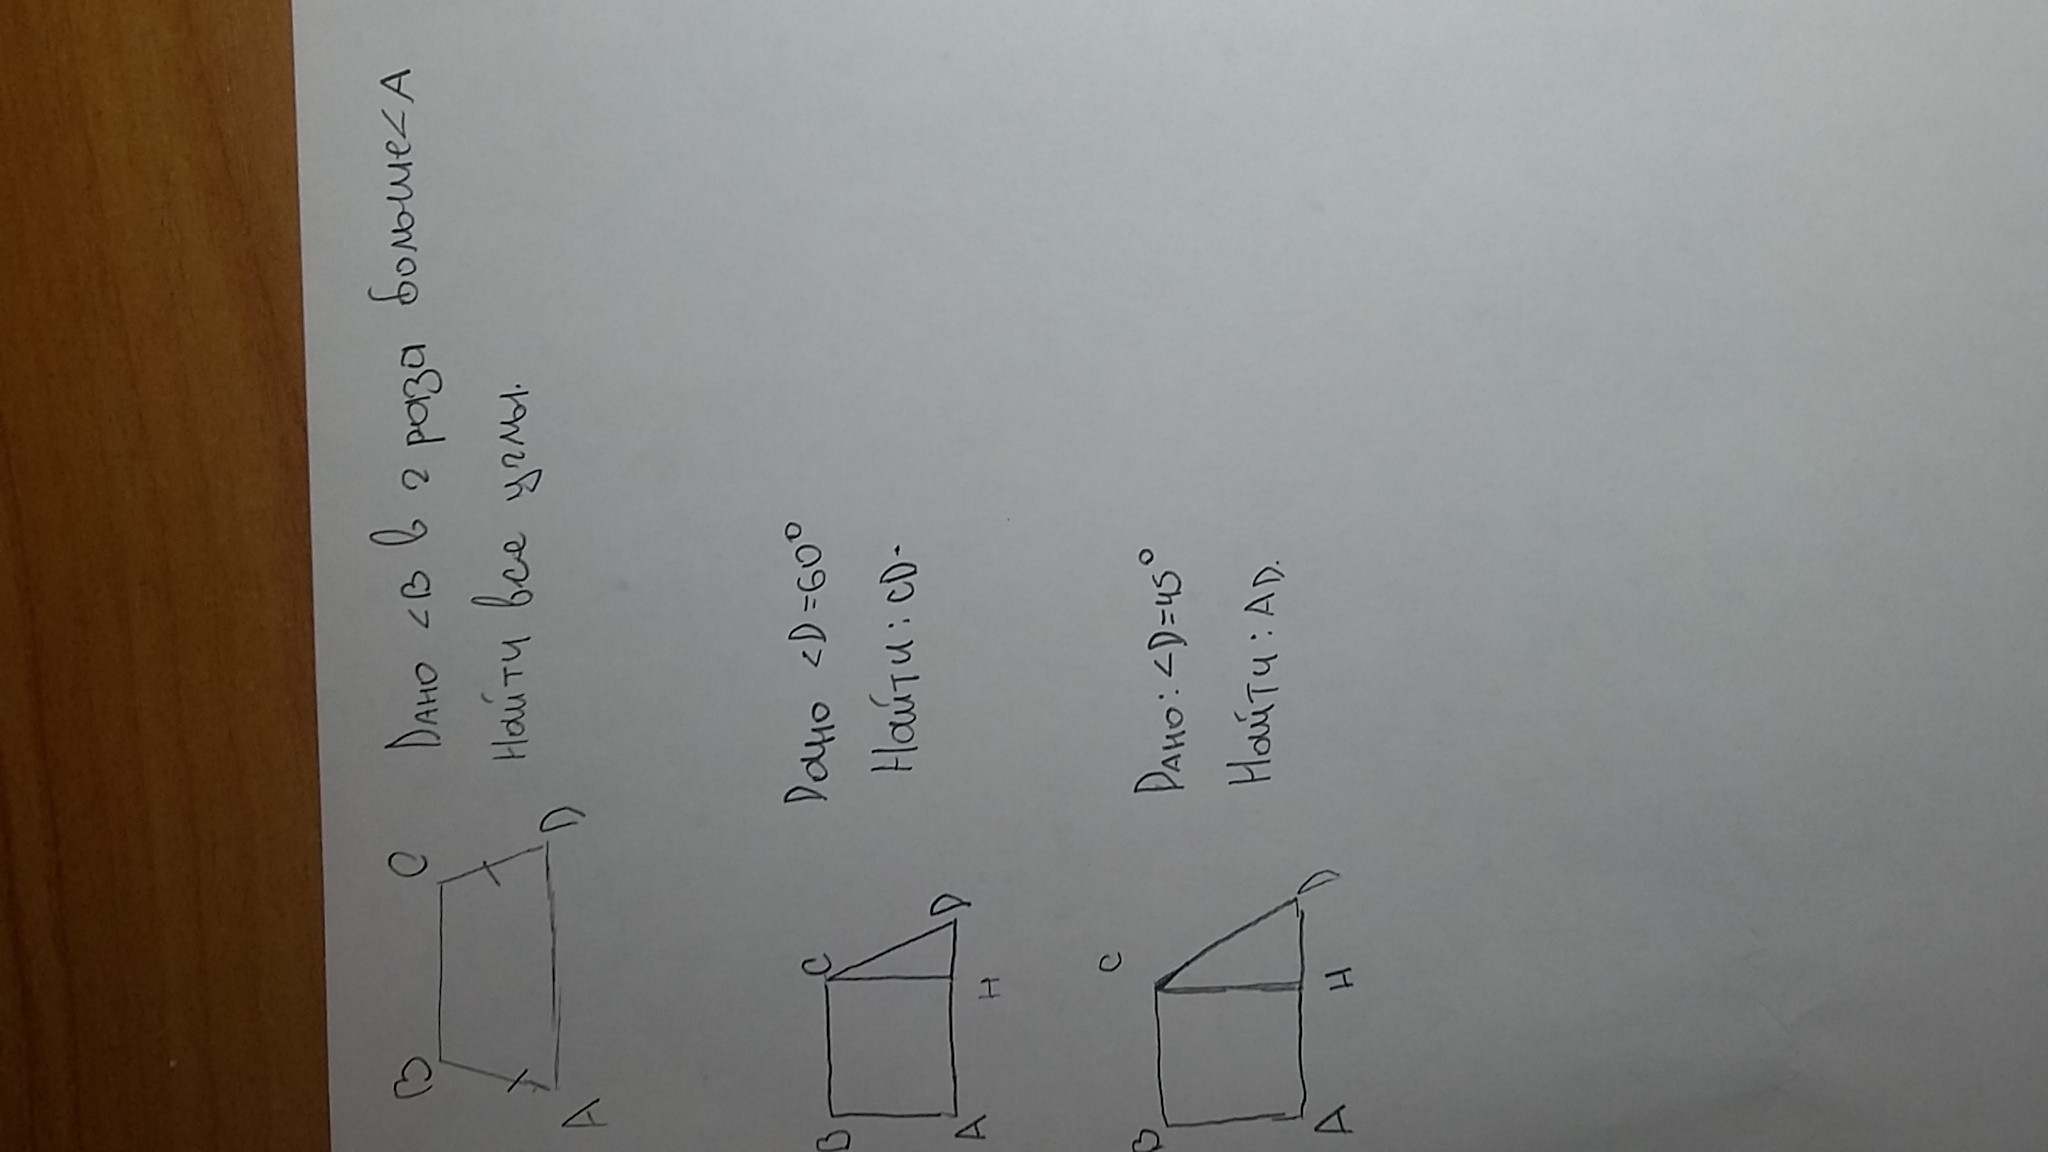 B C
A D
Дано <B в 2 раза больше <A
Найти все углы.
B C
A H D
Дано <D=60°
Найти: CD.
B C
A H D
Дано: <D=45°
Найти: AD.